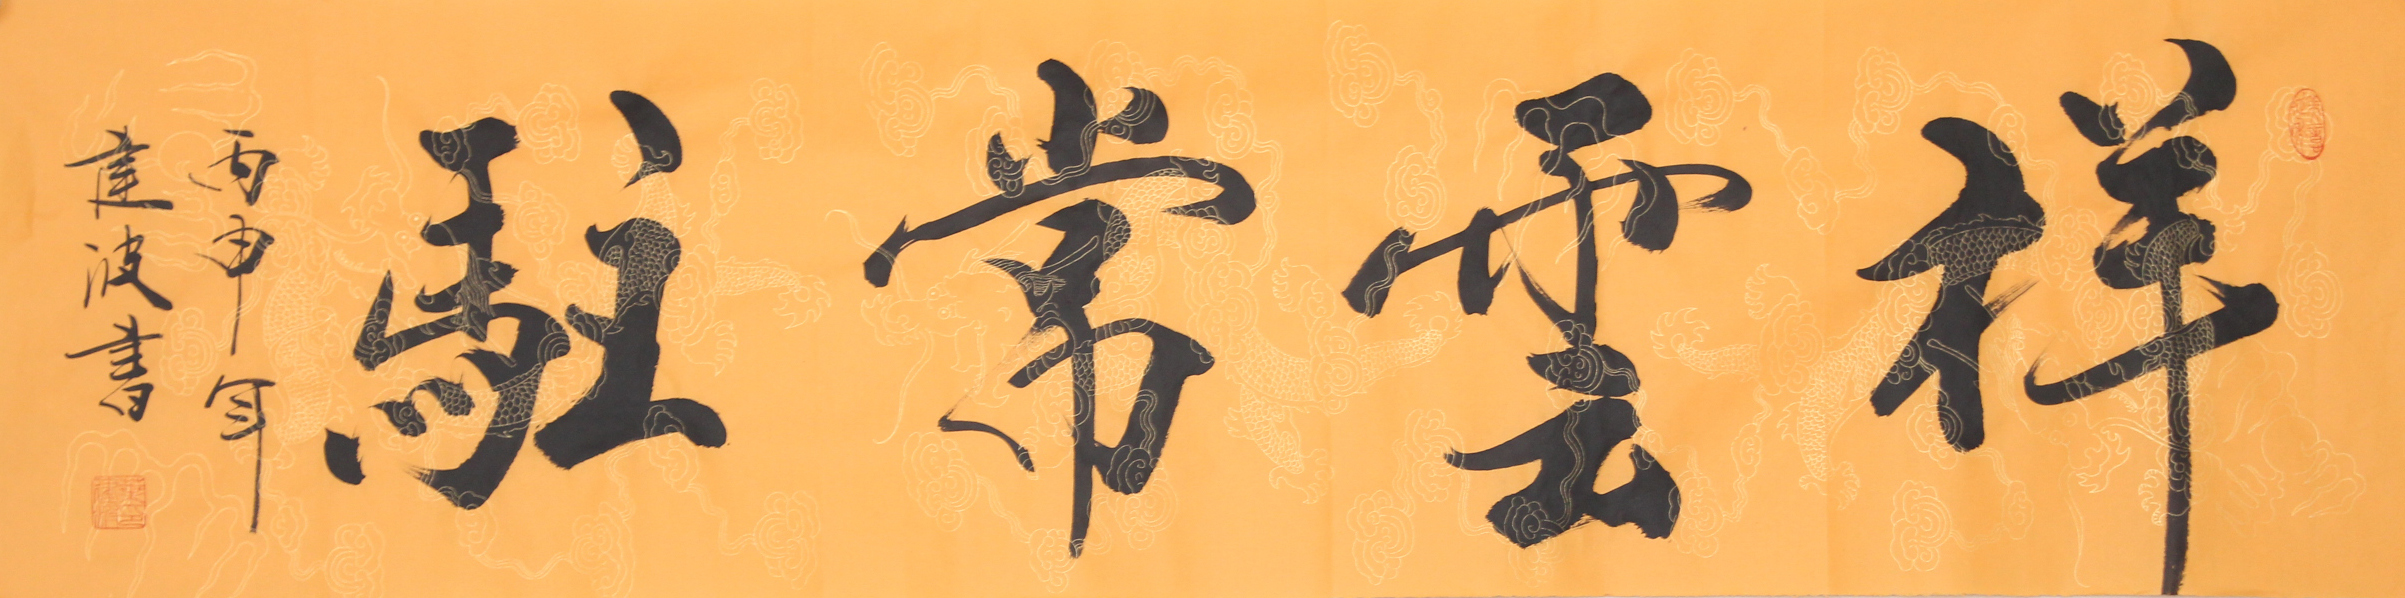 祥雲常駐
丙申年
建波書